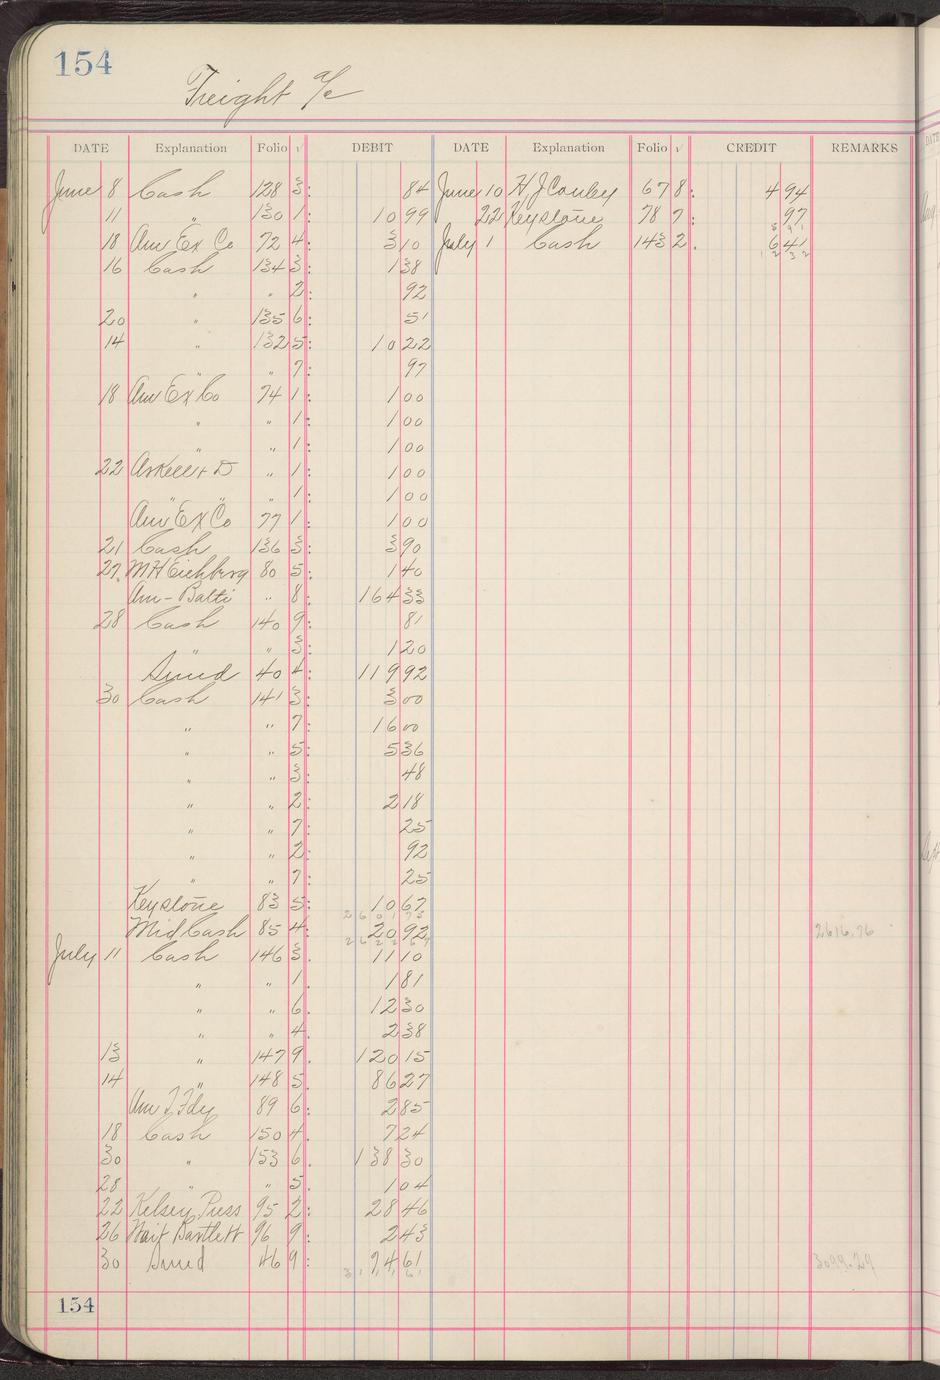 154
Freight a/c
DATE Explanation Folio √ DEBIT DATE Explanation Folio √ CREDIT REMARKS
June 8 Cash 128 3: 84 June 10 H J Conley 67 8: 4 94
11 " 130 1: 10 99 22 Keystone 78 7: 97
18 Am Ex Co 72 4: 3 10 July 1 Cash 143 2. 6 41
16 Cash 134 3: 1 38
" " 2: 92
20 " 135 6: 51
14 " 132 5: 10 22
" " 7: 97
18 Am Ex Co 74 1: 1 00
" " 1: 1 00
" " 1: 1 00
22 Askell + D " 1: 1 00
" " " 1: 1 00
Am Ex Co 77 1: 1 00
21 Cash 136 3: 3 90
27. M H Eichberg 80 5: 1 40
Am - Balti " 8: 164 33
28 Cash 140 9: 81
" " 3: 1 20
Sund 40 4: 119 92
30 Cash 141 3: 3 00
" " 7: 16 00
" " 5: 5 36
" " 3: 48
" " 2: 2 18
" " 7: 25
" " 2: 92
" " 7: 25
Keystone 83 5: 10 67
2601 73
Mid Cash 85 4: 20 92 2616.76
2622 67
July 11 Cash 146 3. 11 10
" " 1. 1 81
" " 6. 12 30
" " 4. 2 38
13 " 147 9. 120 15
14 " 148 5. 86 27
Am T Fdy 89 6: 2 85
18 Cash 150 4. 7 24
30 " 153 6. 138 30
28 " " 5. 1 04
22 Kelsey Press 95 2: 28 46
26 Wait Bartlett 96 9: 2 43
30 Sund 46 9: 74 61 3099.29
154